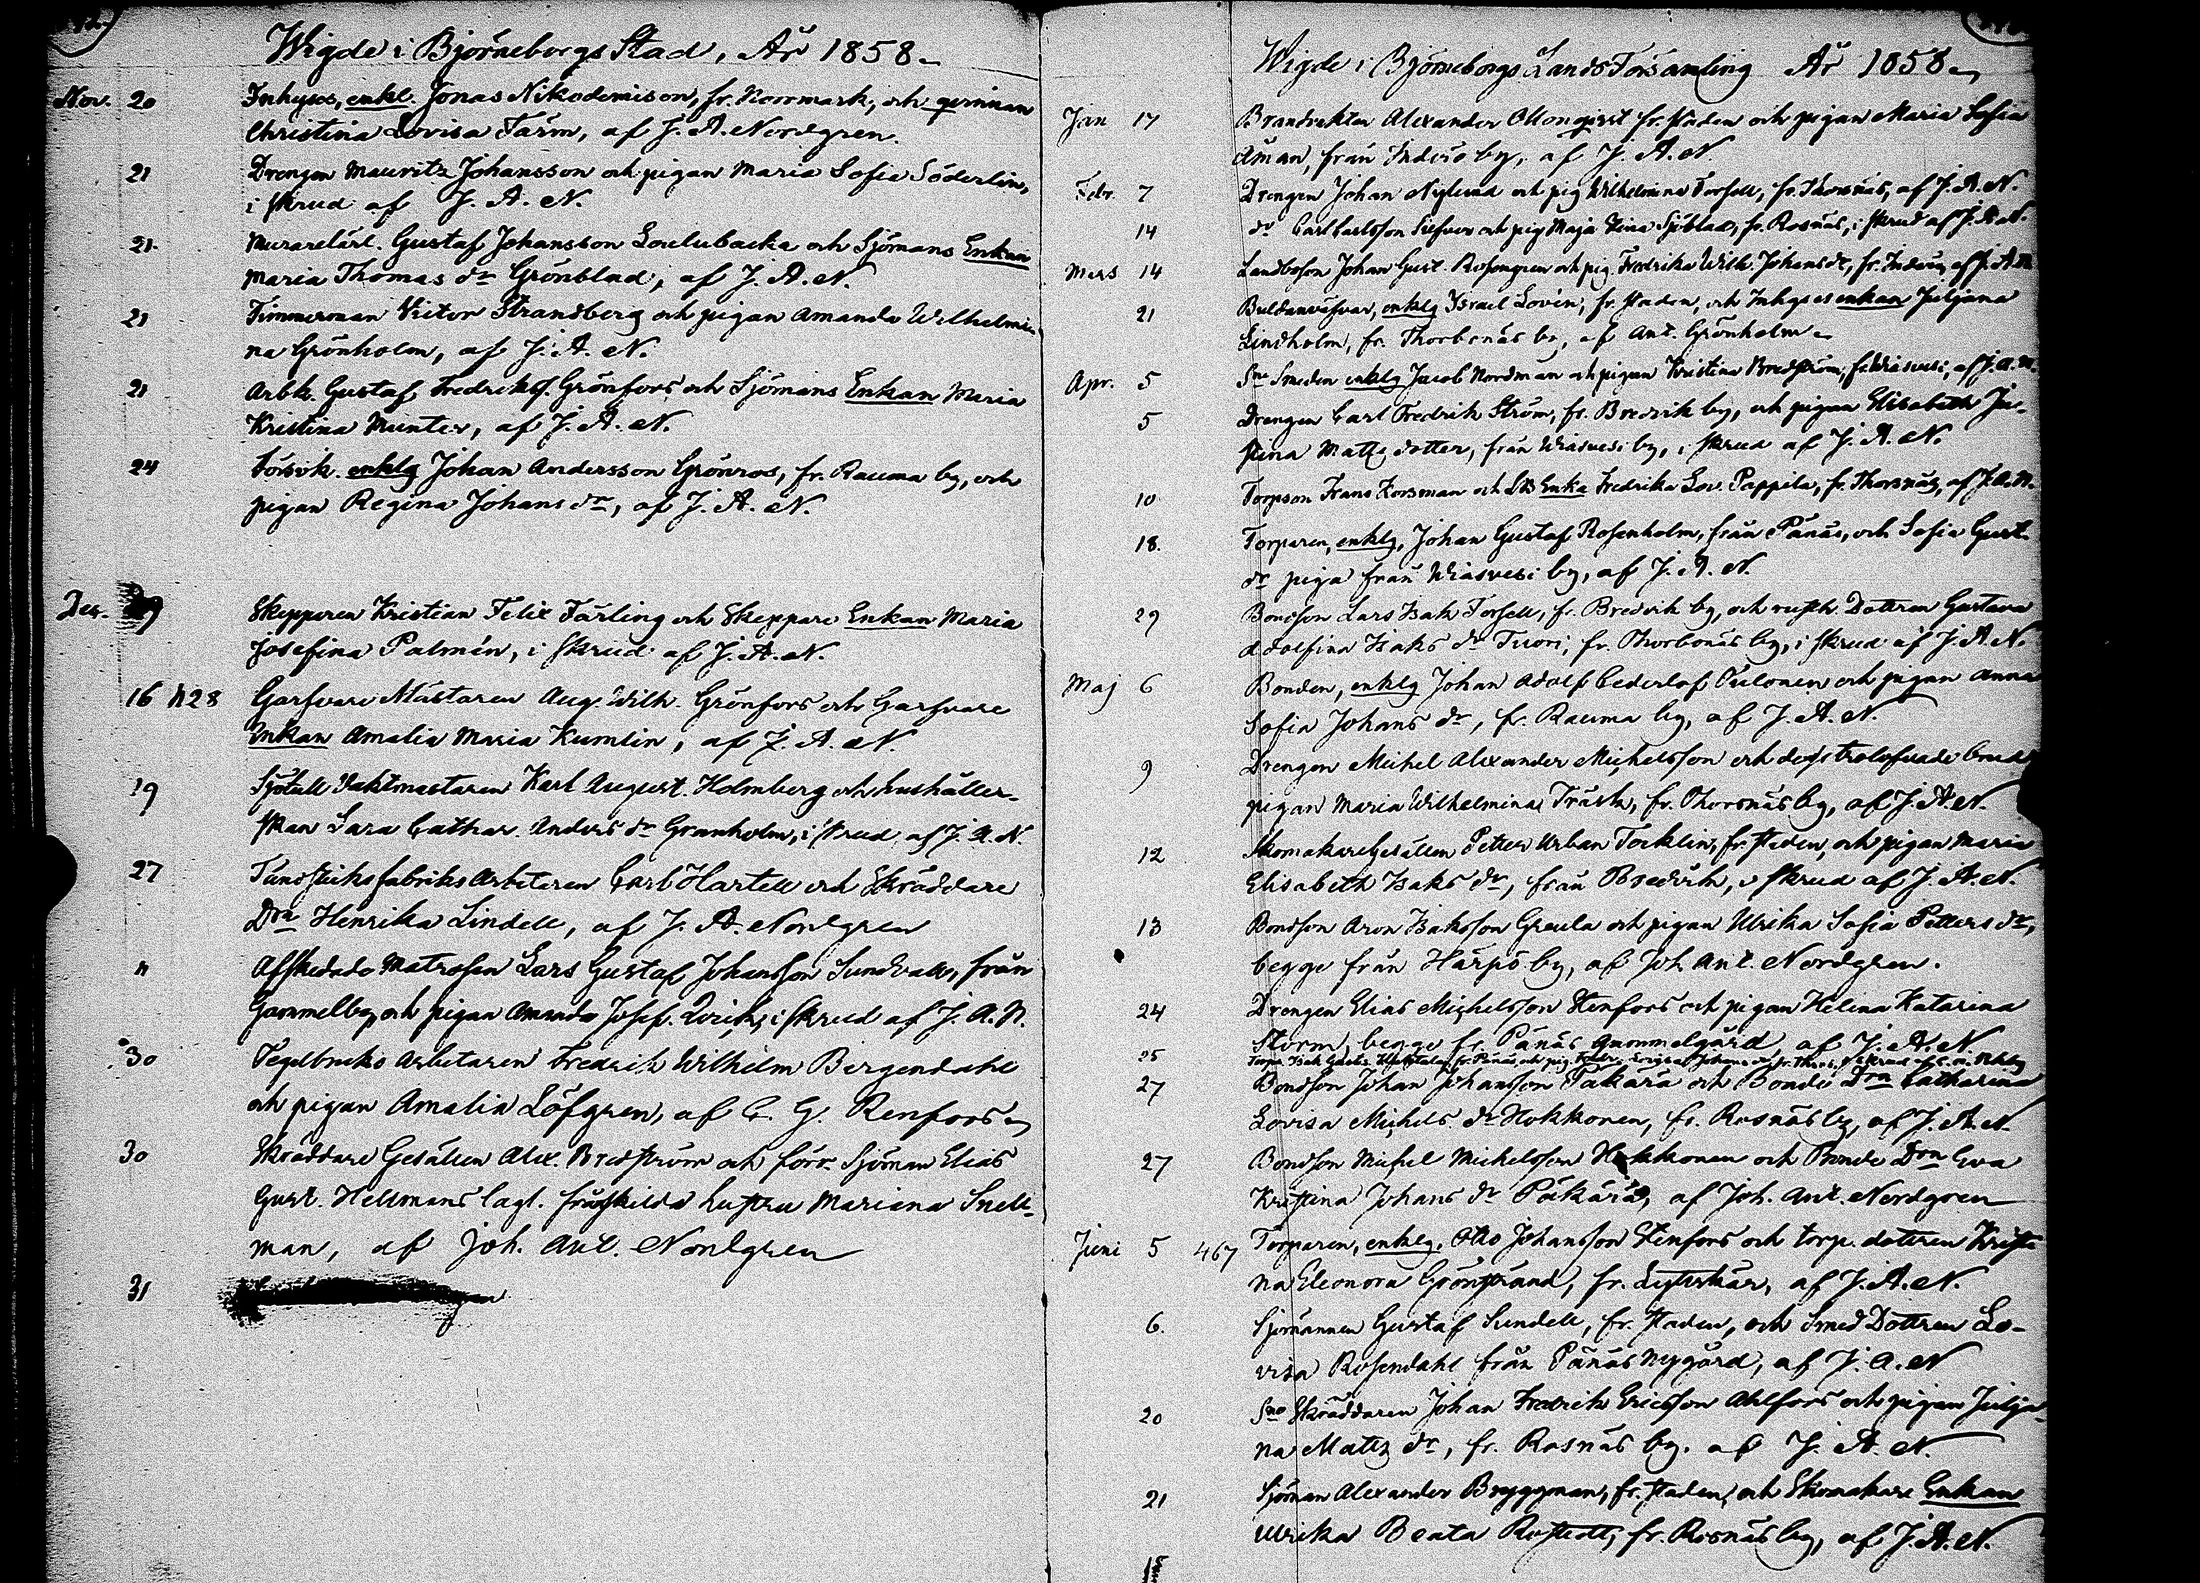 Wigde i Björneborgs Stad, År 1858
Nov. 20 Inhyses, enkl. Jonas Nikodemison, fr. Norrmark, och qvinnan
Christina Lovisa Färm, af J. A. Nordgren.
21 Drengen Mauritz Johansson och pigan Maria Sofia Söderlin,
i skrud af J. A. N.
21 Murarelärl. Gustaf Johansson Loulubacka och Sjömans Enkan
Maria Thomas dr Grönblad, af J. A. N.
21 Timmerman Victor Strandberg och pigan Amanda Wilhelmi-
na Grönholm, af J. A. N.
21 Arbk. Gustaf Fredriksf. Grönfors och Sjömans Enkan Maria
Kristina Munter, af J. A. N.
24 enklg Johan Andersson Grönroos, fr. Rauma by, och
pigan Regina Johans dr, af J. A. N.
Dec. 9 Skepparen Kristian Felix Färling och Skeppare Enkan Maria
Josefina Palmén, i skrud af J. A. N.
16 Garfvare Mästaren Aug. Wilh. Grönfors och Garfvare
Enkan Amalia Maria Kumlin, af J. A. N.
19 Sjötull Vaktmästaren Karl August Holmberg och hushåller-
skan Sara Cathar. Anders dr Granholm, i skrud af J. A. N.
27 Tändsticksfabriks Arbetaren Carl Hartell och Skräddare
Drn Henrika Lindell, af J. A. Nordgren
" Afskedade Matrosen Lars Gustaf Johansson Sundvall, från
Gammelby och pigan Amanda Josef. Qvick, i skrud af J. A. N.
30 Tegelbruks Arbetaren Fredrik Wilhelm Bergendahl
och pigan Amalia Löfgren, af C. G. Renfors
30 Skräddare Gesällen Alex. Bredström och förr. Sjöman Elias
Gust. Hellmans lagl. frånskilda hustru Mariana Snell-
man, af Joh. Ant. Nordgren
31
Wigde i Björneborgs Lands Församling År 1858
Jan 17 Brandvakten Alexander Ollonqvist fr. staden och pigan Maria Sofia
Åman, från Inderö by, af J. A. N.
Febr. 7 Drengen Johan Nylund och pig Wilhelmina Forsell, fr. Thorsnäs, af J. A. N.
14 dr Carl Carlsson och pig Maja Stina Sjöblad, fr. Rosnäs, i skrud af J. A. N.
Mars 14 Landboson Johan Gust. Rosengren och pig. Fredrika Wilh. Johans dr, fr. Inderö, af J. A. N.
21 enklg Israel Lovén, fr. staden, och Inhyses enkan Juljana
Lindholm, fr. Thorbonäs by, af Ant. Grönholm
Apr. 5 Sne Smeden enklg Jacob Nordman och pigan Kristina Bredström, fr. Wiasvesi, af J. A. N.
5 Drengen Carl Fredrik Ström, fr. Bredvik by, och pigan Elisabeth Ju-
stina Matts dotter, från Wiasvesi by, i skrud af J. A. N.
10 Torpson Frans Korsman och Enka Fredrika Lov. Pappila, fr. Thorsnäs, af J. A. N.
18. Torparen, enklg, Johan Gustaf Rosenholm, från Pånäs, och Sofia Gust.
dr piga från Wiasvesi by, af J. A. N.
29 Bondson Lars Isak Forsell, fr. Bredvik by, och rusth. Dottren Gustava
Adolfina Isaks dr Tuori, fr. Thorbonäs by, i skrud af J. A. N.
Maj 6 Bonden, enklg Johan Adolf Cederlöf Oulonen och pigan Anna
Sofia Johans dr, fr. Rauma by, af J. A. N.
9 Drengen Michel Alexander Michelsson och dess trolofvade brud
pigan Maria Wilhelmina Träsk, fr. Thorsnäs by, af J. A. N.
12 Skomakaregesällen Petter Urban Tocklin, fr. staden, och pigan Maria
Elisabeth Isaks dr, från Bredvik, i skrud af J. A. N.
13 Bondson Aron Isaksson Greula och pigan Ulrika Sofia Petters dr,
begge från Harpö by, af Joh. Ant. Nordgren.
24 Drengen Elias Michelsson Stenfors och pigan Helena Katarina
Storm, begge fr. Pånäs gammelgård af J. A. N
25
27 Bondson Johan Johansson Päkärä och Bonde Drn Catharina
Lovisa Michels dr Hokkonen, fr. Rosnäs by, af J. A. N.
27 Bondson Michel Michelsson Hokkonen och Bonde Drn Eva
Kristina Johans dr Päkärä, af Joh. Ant. Nordgren
Juni 5 467 Torparen, enklg. Otto Johansson Stenfors och torp. dottren Kristi
na Eleonora Grönstrand, fr. Lyttskär, af J. A. N.
6. Sjömannen Gustaf Sundell, fr. staden, och Smed Dottren Lo-
visa Rosendahl från Pånäs nygård, af J. A. N
20 Sne Skräddaren Johan Fredrik Ericsson Ahlfors och pigan Julja-
na Matts dr, fr. Rosnäs by. af J. A. N.
21 Sjöman Alexander Bryggman, fr. staden, och Skomakare Enkan
Ulrika Beata Rostedt, fr. Rosnäs by, af J. A. N.